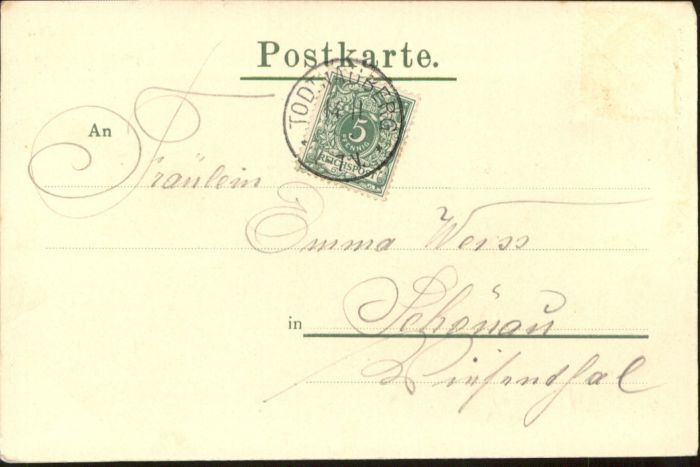 Postkarte.
TODTNAUBERG
5
PFENNIG
REICHSPOST
An Fräulein
Emma Weiss
in Schönau
Wiesenthal